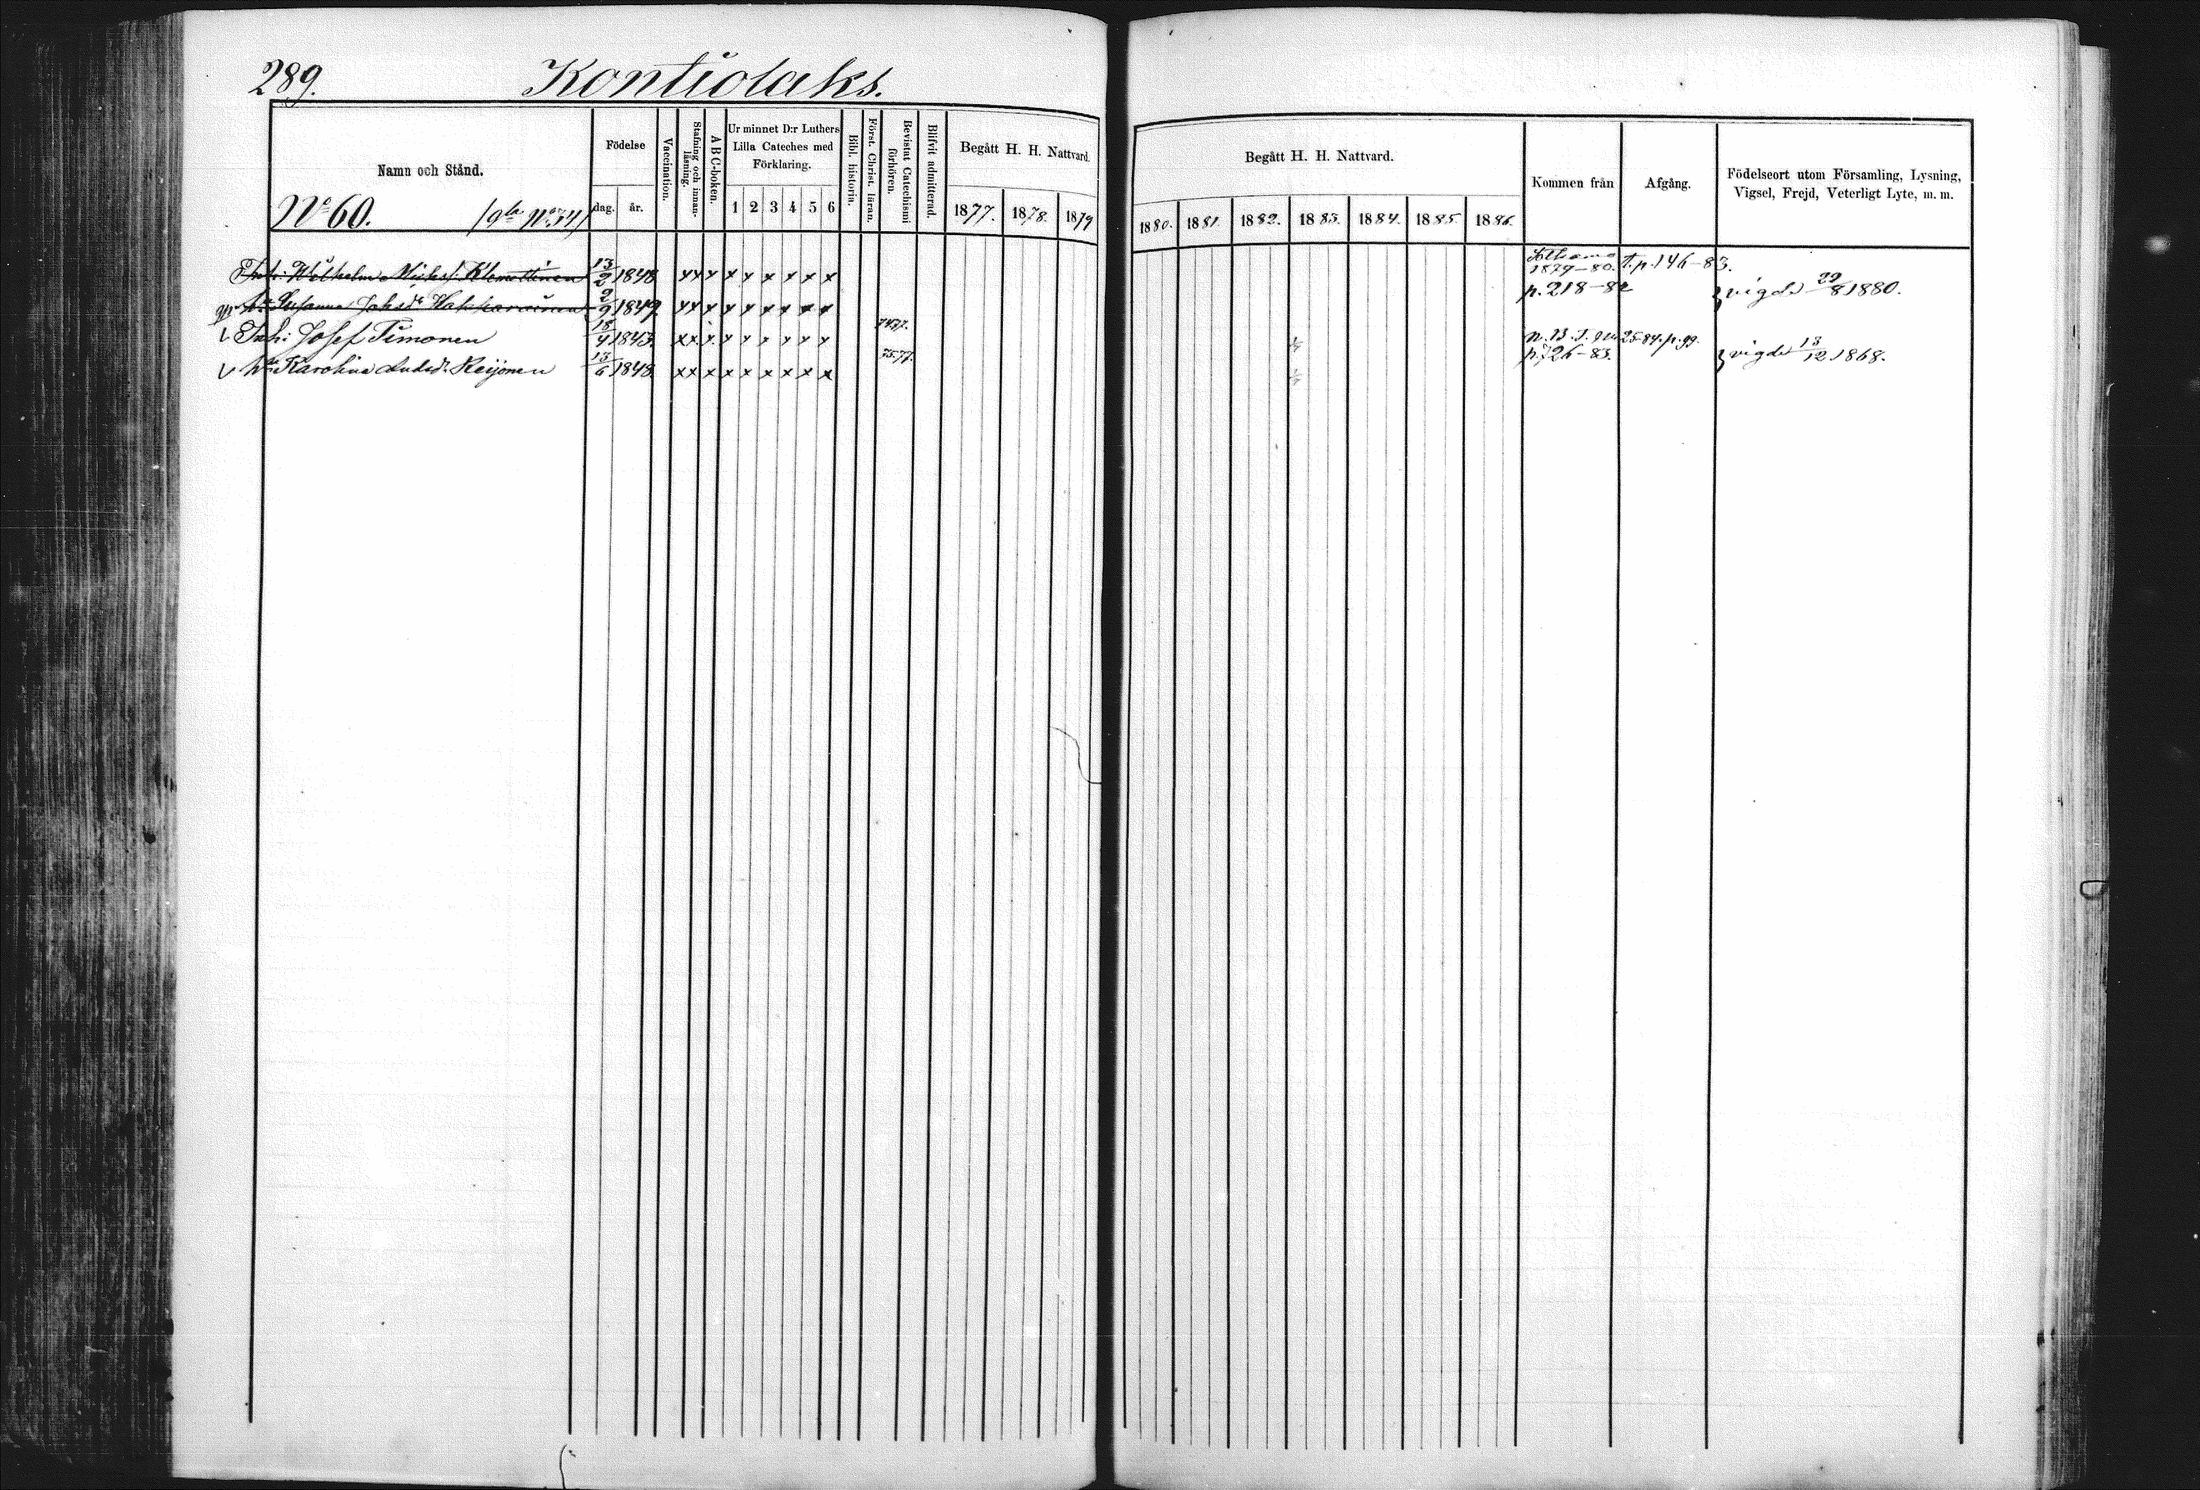 289. Kontiolaks.
Namn och Stånd.
Födelse
dag. år.
Vaccination.
Stafning och innanläsning.
A B C-boken.
Ur minnet D:r Luthers
Lilla Cateches med
Förklaring.
1 2 3 4 5 6
Bibl. historia.
Först. Christ. läran.
Bevistat Catechismi förhören.
Blifvit admitterad.
Begått H. H. Nattvard.
1877. 1878. 1879
Begått H. H. Nattvard.
1880. 1881. 1882. 1883. 1884. 1885. 1886.
Kommen från
Afgång.
Födelseort utom Församling, Lysning,
Vigsel, Frejd, Veterligt Lyte, m. m.
No 60.
Inh: Wilhelm Klemettinen 13/2 1848 x x x x x x x x x 1879–80. t.p. 146–83.
Susanna 2/9 1849 x x x x x x x x x p. 218–82 vigde 22/8 1880.
Inh: Josef Timonen 18/4 1843. x x x x x x x x x
h: Karolina Andsdr Reijonen 13/6 1848. x x x x x x x x x 75.77. p. 726–83. vigde 13/12 1868.